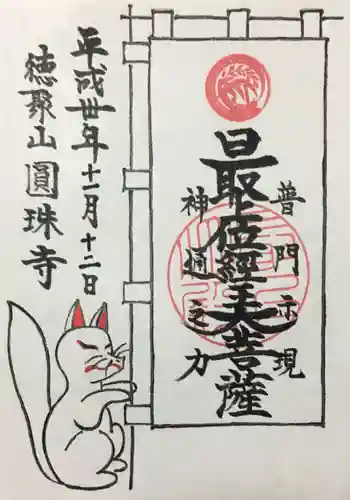 普門示現
最上位経王大菩薩
神通之力
平成卅年十一月十二日
徳聚山圓珠寺